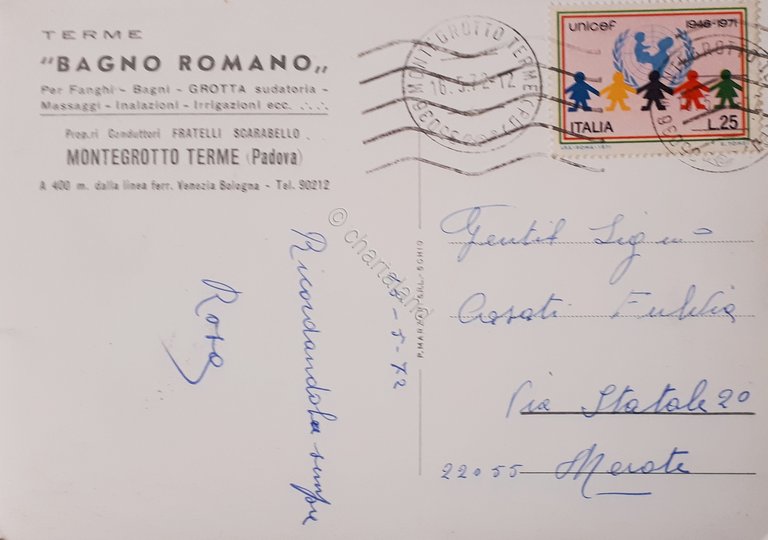 TERME
"BAGNO ROMANO„
Per Fanghi - Bagni - GROTTA sudatoria -
Massaggi - Inalazioni - Irrigazioni ecc. .·. .·.
Prop.ri Conduttori FRATELLI SCARABELLO .
MONTEGROTTO TERME (Padova)
A 400 m. dalla linea ferr. Venezia Bologna - Tel. 90212
unicef 1946-1971
ITALIA L.25
MONTEGROTTO TERME (PD)
16.5.72-12
35036
-5-72
Ricordandola sempre
Rosa
© chartaland
Gentil Sig na
Casati Fulvia
Via Statale 20
22055 Merate